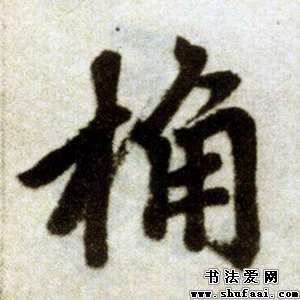 桷
书法爱网
www.shufaai.com